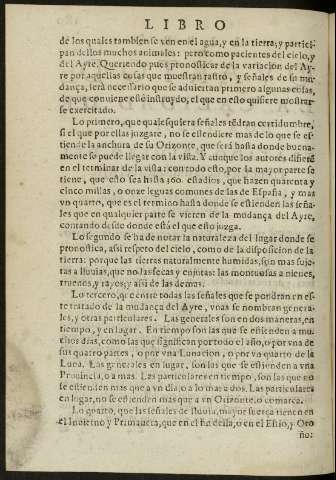 LIBRO
de los quales tambien se ven en el agua, y en la tierra, y partici-
pan dellos muchos animales: pero como pacientes del cielo, y
del Ayre. Queriendo pues pronosticar de la variacion del Ay-
re por aquellas cosas que muestran rastro, y señales de su mu-
dança, serà necessario que se aduiertan primero algunas cosas,
de que conuiene esté instruydo, el que en esto quisiere mostrar-
se exercitado.
Lo primero, que qualesquiera señales tẽdran certidumbre,
si el que por ellas juzgare, no se estendiere mas de lo que se es-
tiende la anchura de su Orizonte, que serà hasta donde buena-
mente se puede llegar con la vista. Y aunque los autores difierẽ
en el terminar de la vista: con todo esto, por la mayor parte se
tiene, que esto sea hasta 360. estadios, que hazen quarenta y
cinco millas, o onze leguas comunes de las de España, y mas
vn quarto, que es el termino hasta donde se estienden las seña-
les que en qualquier parte se vieren de la mudança del Ayre,
contando desde donde està el que esto juzga.
Lo segundo se ha de notar la naturaleza del lugar donde se
pronostica, assi respeto del cielo, como de la disposicion de la
tierra: porque las tierras naturalmente humidas, son mas suje-
tas a lluuias, que no las secas y enjutas: las montuosas a nieues,
truenos, y rayos; y assi de las demas.
Lo tercero, que entre todas las señales que se pondran en es-
te tratado de la mudança del Ayre, vnas se nombran genera-
les, y otras particulares. Las generales son en dos maneras, en
tiempo, y en lugar. En tiempo son las que se estienden a mu-
chos dias, como las que significan por todo el año, o por vna de
sus quatro partes, o por vna Lunacion, o por vn quarto de la
Luna. Las generales en lugar, son las que se estienden a vna
Prouincia, o a mas. Las particulares en tiempo, son las que no
se estienden mas que a vn dia, o a lo mas a dos. Las particulares
en lugar, no se estienden mas que a vn Orizonte, o comarca.
Lo quarto, que las señales de lluuia, mayor fuerça tienen en
el Inuierno y Primauera, que en el                     o en el Estio, y Oto
ño: